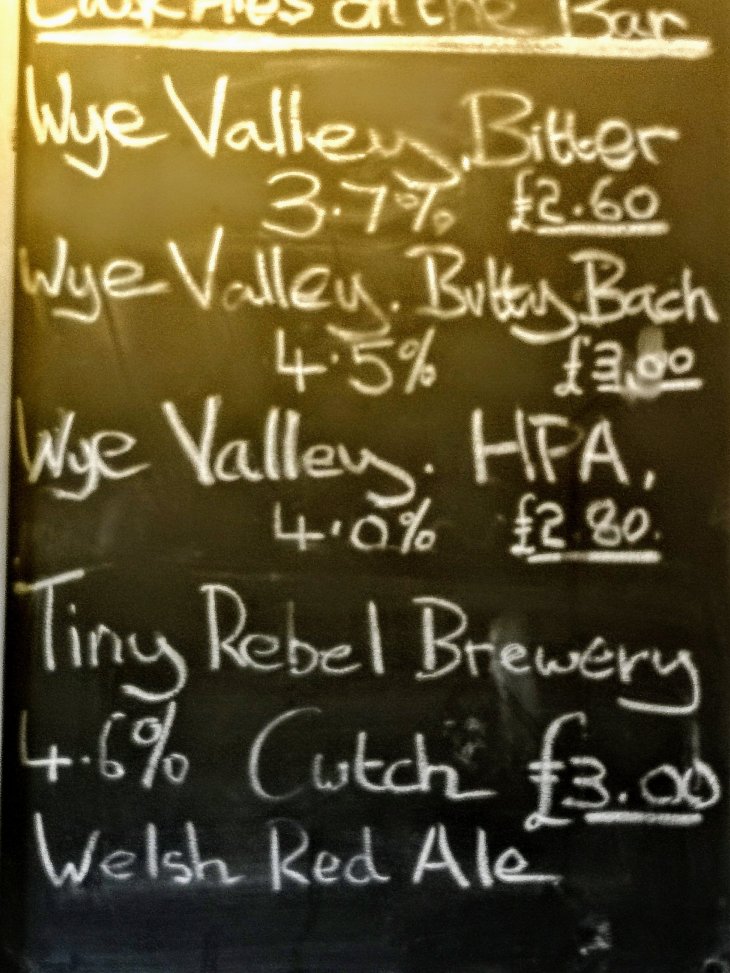 Cask Ales on the Bar
Wye Valley. Bitter
3.7% £2.60
Wye Valley. Butty Bach
4.5% £3.00
Wye Valley. HPA,
4.0% £2.80.
Tiny Rebel Brewery
4.6% Cwtch £3.00
Welsh Red Ale